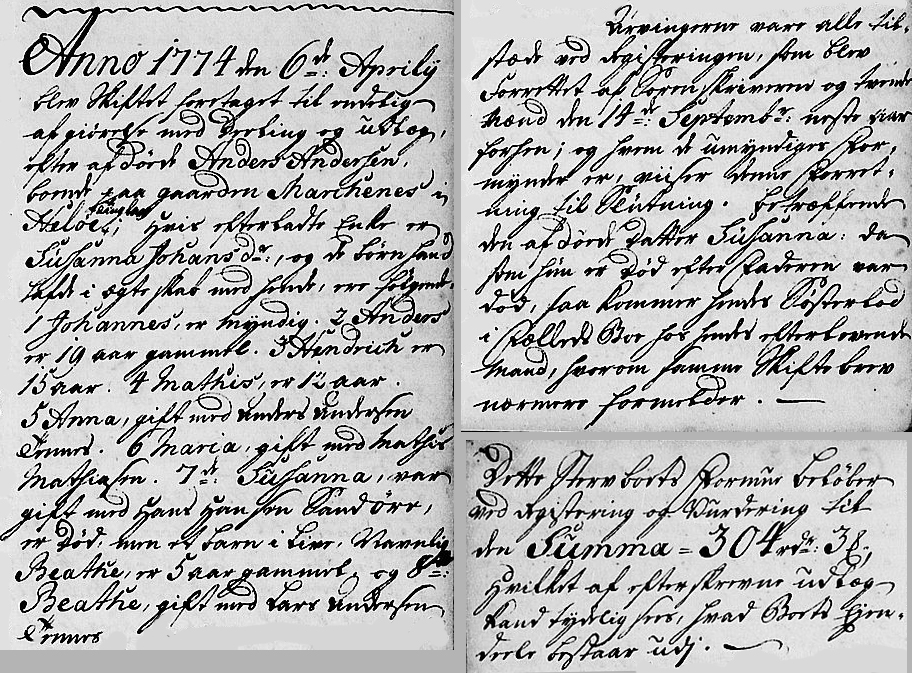 Anno 1774 den 6de: Aprily
blev Skiftet foretaget til endelig
afgiørelse med Deeling og udlæg,
efter afdøde Anders Andersen,
boende paa gaarden Marchenes i
Heløe,; hvis efterladte Enke er
Susanna Johans dr:, og de børn hand
hafde i ægteskab med hende, ere følgende.
1 Johannes, er myndig. 2 Anders
er 19 aar gammel. 3 Hendrich er
15 aar. 4 Mathis, er 12 aar.
5 Anna, gift med Anders Andersen
Tennes. 6 Maria, gift med Mathis
Mathiasen. 7de: Susanna, var
gift med Hans Hansen Sandøre,
er død, men et barn i Live, Navnlig
Beathe, er 5 aar gammel, og 8de:
Beathe, gift med Lars Andersen
Tennes
Arvingerne vare alle til-
stæde ved Registeringen, som blev
Forrettet af Sorenskriverne og tvende
Mænd den 14de: Septembr: neste aar
forhen; og hvem de umyndiges For-
mynder er, viiser denne Forret-
ning til Slutning. Betræffende
den afdøde Datter Susanna: da
som hun er død efter Faderen var
død, saa kommer hendes Søsterlod
i Fælleds Boe hos hendes efterlevende
Mand, hvorom samme Skiftebrev
nærmere formelder.
Dette Sterfboets Formue beløber
ved Registering og Vurdering til
den Summa = 304 rdr: 3 s;
Hvilket af efterskrevne udlæg
kand tydelig sees, hvad Boets Eyen-
deele bestaar udj.